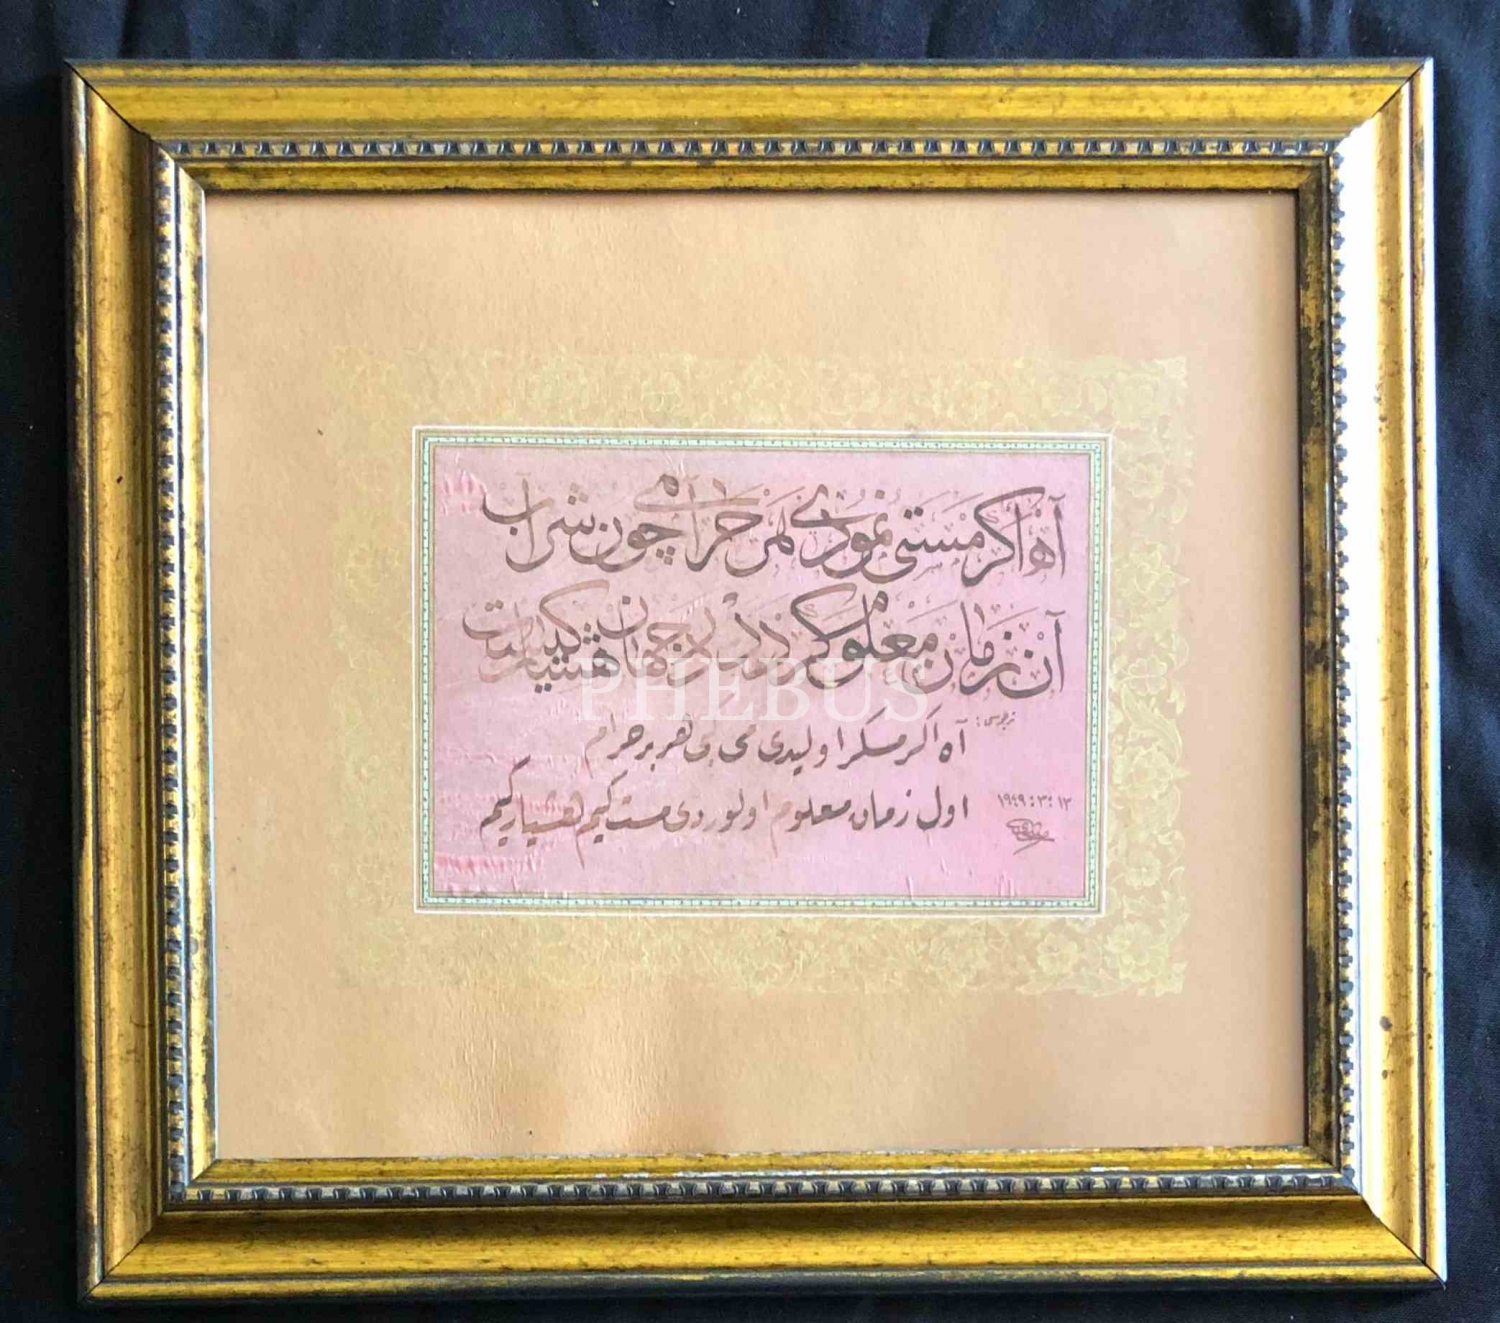 آه اگر مستی نمودی هر حرامی چون شراب
آن زمان معلوم کردی در جهان هشیار کیست
ترجمه‌سی:
آه اگر مسکر اولیدی می گبی هر بر حرام
اول زمان معلوم اولوردی مست کیم هشیار کیم
١٩٤٩:٣:١٣
PHEBUS